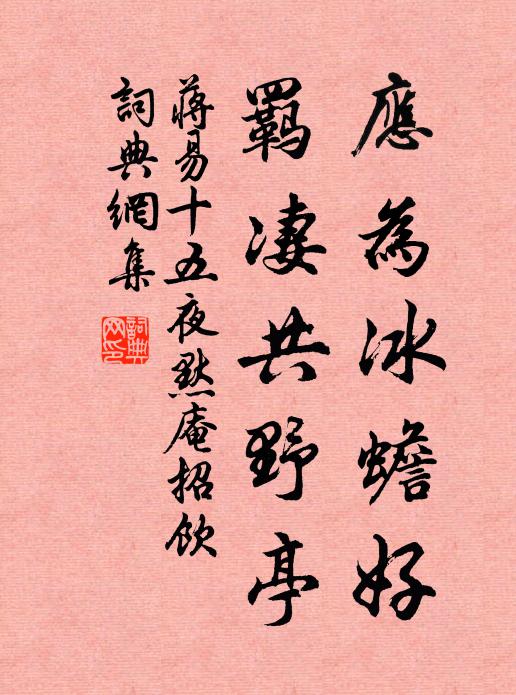 應為冰蟾好
羈淒共野亭
蔣易十五夜默庵招飲
詞典網集
詞典網印